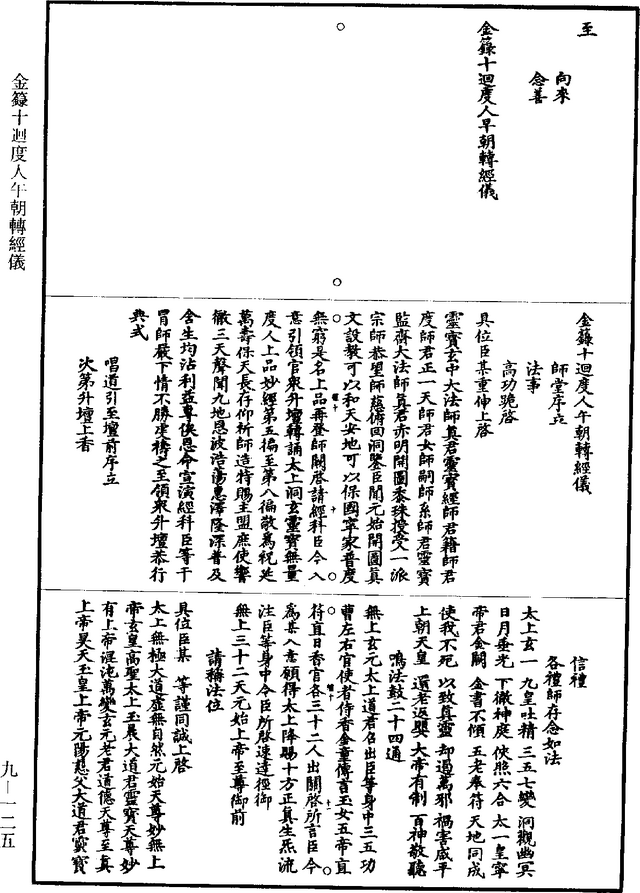 至
向來
念善
金籙十迴度人早朝轉經儀
金籙十迴度人午朝轉經儀
師堂序立
法事
高功跪啓
具位臣某重伸上啓
靈寶玄中大法師真君靈寶經師君籍師君
度師君正一天師君女師嗣師系師君靈寶
監齋大法師真君赤明開圖黍珠授受一派
宗師恭望師慈俯回洞鑒臣聞元始開圖真
文設教可以和天安地可以保國寧家普度
無窮是名上品再登師闕啓請經科臣今入
意引領官衆升壇轉誦太上洞玄靈寶無量
度人上品妙經第五徧至第八徧敬爲祝延
萬壽保天長存仰祈師造特賜主盟庶使響
徹三天聲聞九地恩波浩蕩惠澤隆深普及
含生均沾利益專俟恩命宣演經科臣等干
冒師嚴下情不勝虔禱之至領衆升壇恭行
典式
唱道引至壇前序立
次第升壇上香
信禮
各禮師存念如法
太上玄一 九皇吐精 三五七變 洞觀幽冥
日月垂光 下徹神庭 使照六合 太一皇寧
帝君金闕 金書不傾 五老奉符 天地同成
使我不死 以致真靈 却過萬邪 禍害咸平
上朝天皇 還老返嬰 大帝有制 百神敬聽
鳴法鼓二十四通
無上玄元太上道君召出臣等身中三五功
曹左右官使者侍香金童傳言玉女五帝直
符直日香官各三十二人出關啓所言臣今
爲某入意願得太上降賜十方正真生炁流
注臣等身中令臣所啓速達徑御
無上三十二天元始上帝至尊御前
請稱法位
具位臣某 等謹同誠上啓
太上無極大道虛無自然元始天尊妙無上
帝玄皇高聖太上玉晨大道君靈寶天尊妙
有上帝混沌萬變玄元老君道德天尊至真
上帝昊天玉皇上帝元陽慈父大道君寶寶
金籙十迴度人午朝轉經儀
九—一二五